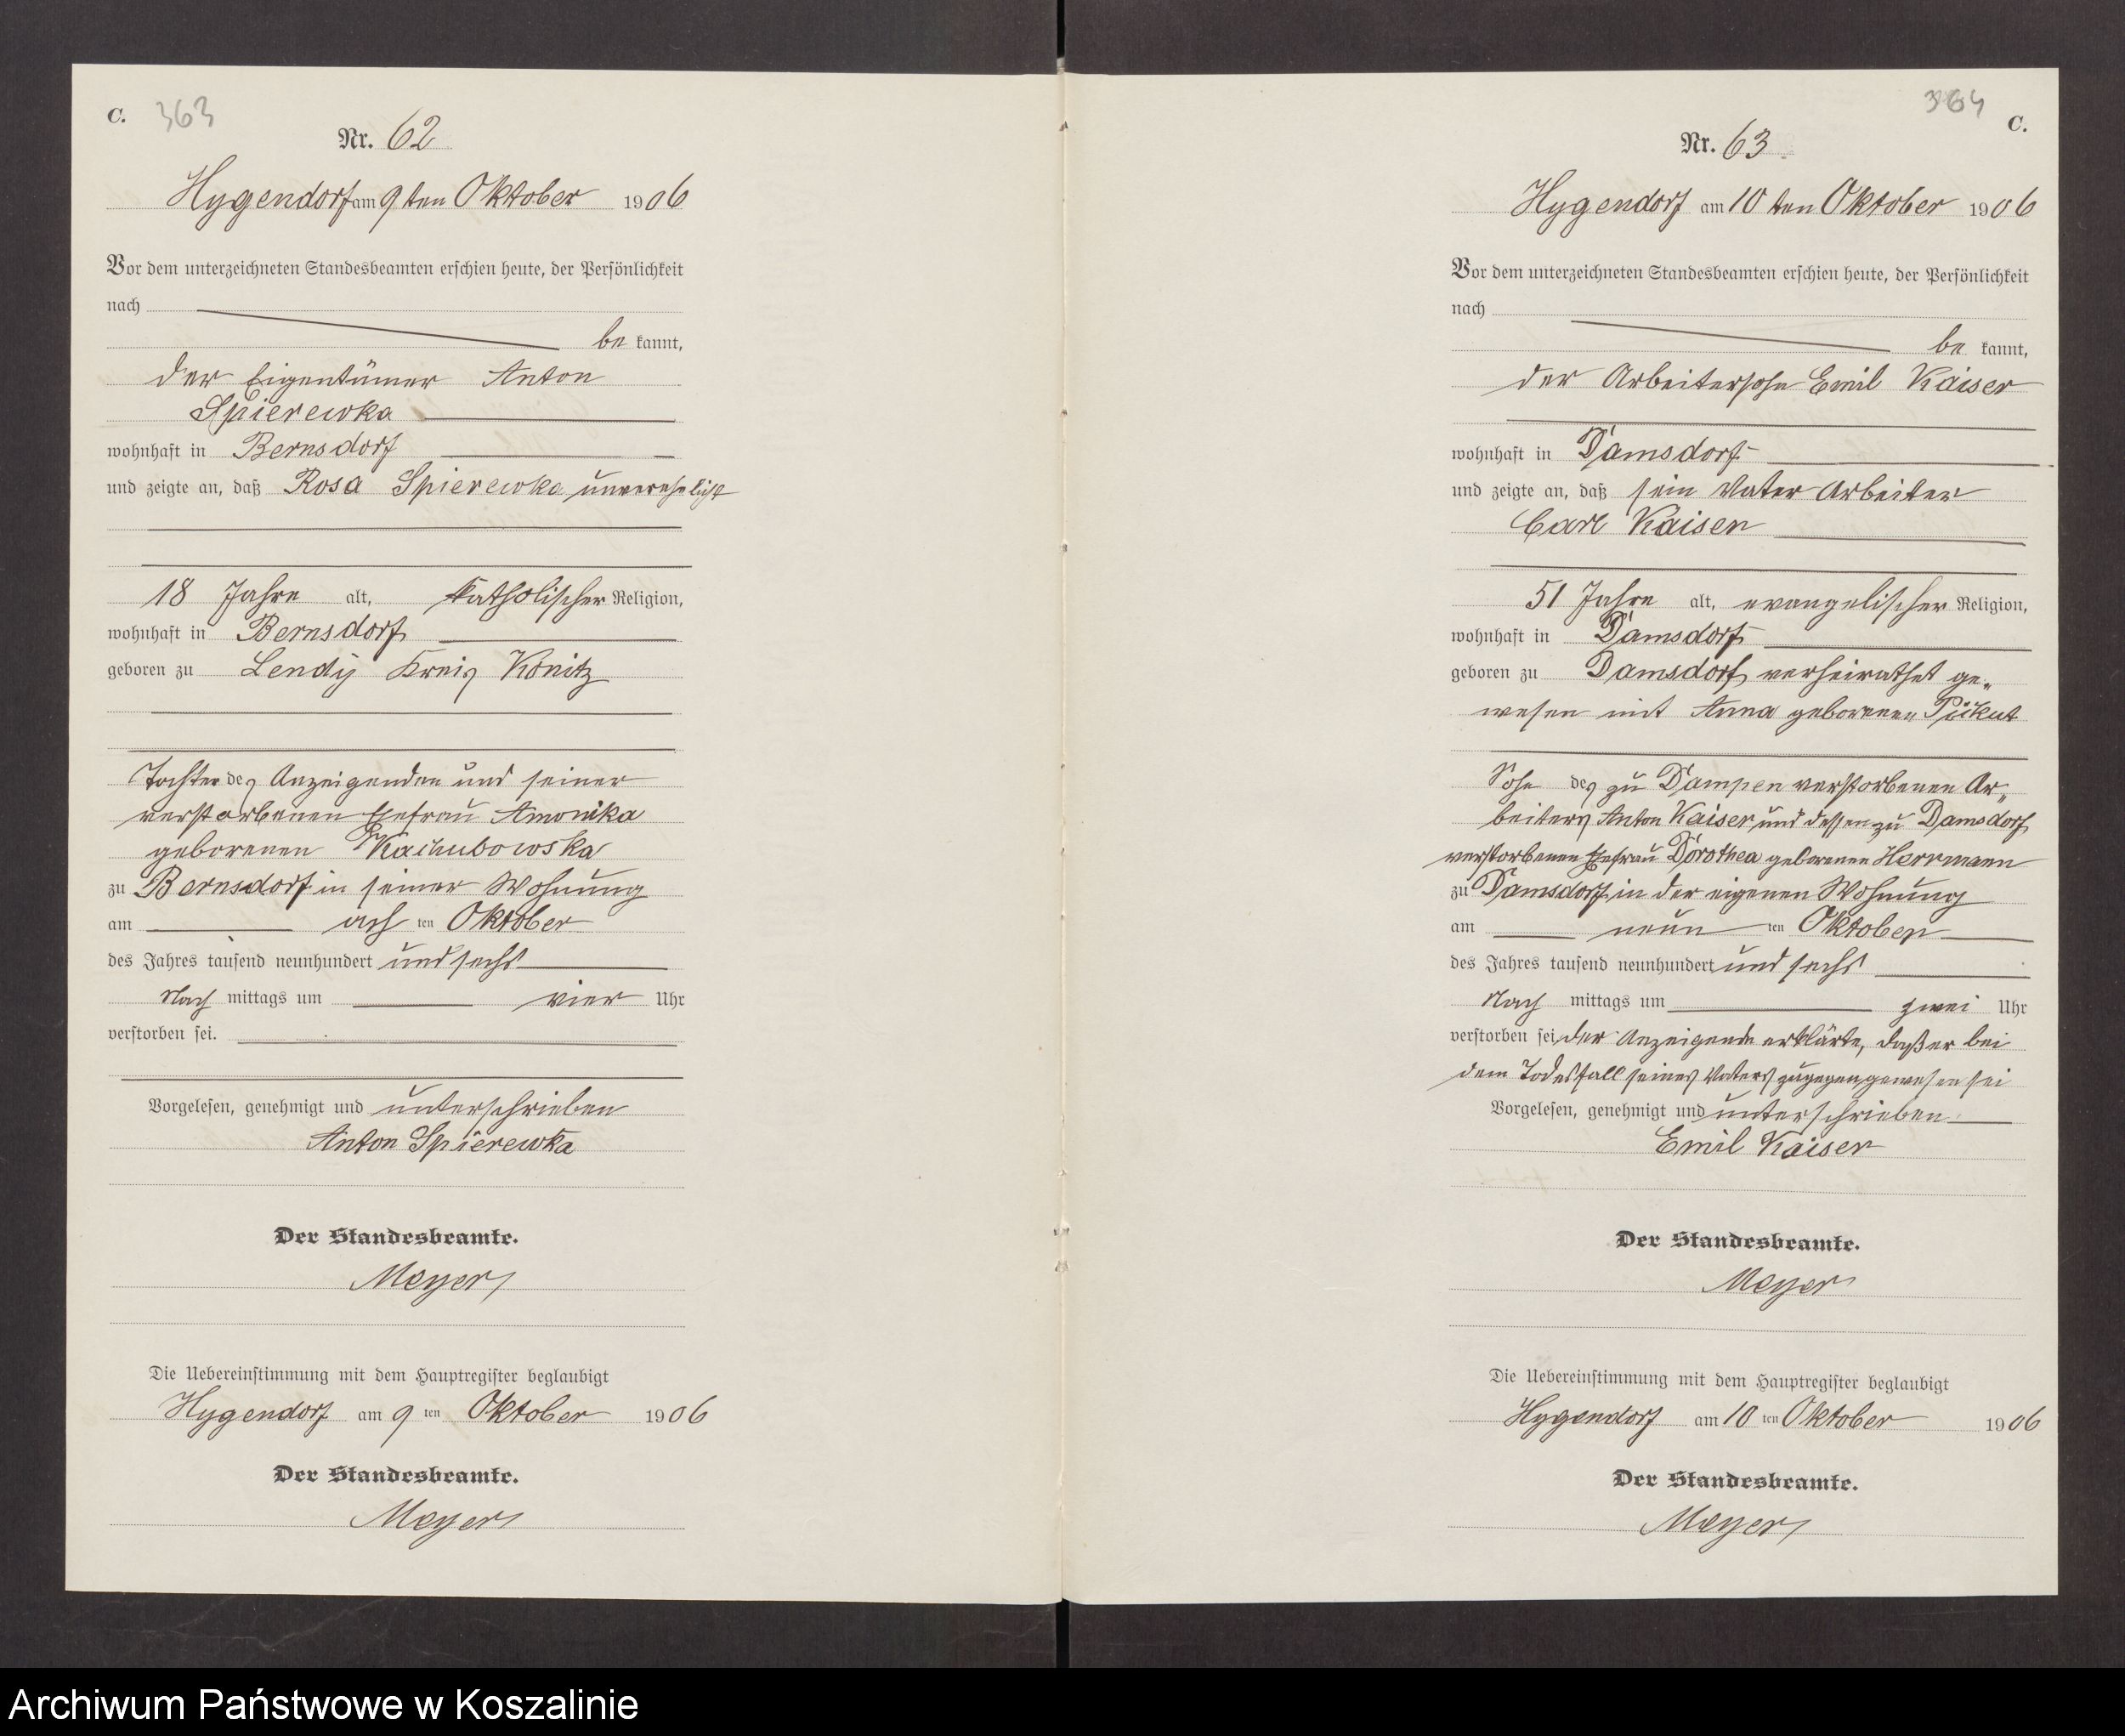 C. 363
Nr. 62
Hygendorf am 9ten Oktober 1906
Vor dem unterzeichneten Standesbeamten erschien heute, der Persönlichkeit
nach
be kannt,
der Eigentümer Anton
Spierewka
wohnhaft in Bernsdorf
und zeigte an, daß Rosa Spierewka unverehelicht
18 Jahre alt, katholischer Religion,
wohnhaft in Bernsdorf
geboren zu Lendy Kreis Konitz
Tochter des Anzeigenden und seiner
verstorbenen Ehefrau Amonika
geborenen
zu Bernsdorf in seiner Wohnung
am ach ten Oktober
des Jahres tausend neunhundert und sechs
Nach mittags um vier Uhr
verstorben sei.
Vorgelesen, genehmigt und unterschrieben
Anton Spierewka
Der Standesbeamte.
Meyer
Die Uebereinstimmung mit dem Hauptregister beglaubigt
Hygendorf am 9 ten Oktober 1906
Der Standesbeamte.
Meyer
364 C.
Nr. 63
Hygendorf am 10 ten Oktober 1906
Vor dem unterzeichneten Standesbeamten erschien heute, der Persönlichkeit
nach
be kannt,
der Arbeitersohn Emil Kaiser
wohnhaft in Damsdorf
und zeigte an, daß sein Vater Arbeiter
Carl Kaiser
51 Jahre alt, evangelischer Religion,
wohnhaft in Damsdorf
geboren zu Damsdorf, verheirathet ge-
wesen mit Anna geborenen
Sohn des zu Dampen verstorbenen Ar-
beiters Anton Kaiser und dessen zu Damsdorf
verstorbenen Ehefrau Dorothea geborenen Herrmann
zu Damsdorf in der eigenen Wohnung
am neun ten Oktober
des Jahres tausend neunhundert und sechs
Nach mittags um zwei Uhr
verstorben sei, der Anzeigende erklärte, daß er bei
dem Todesfall seines Vaters zugegen gewesen sei
Vorgelesen, genehmigt und unterschrieben
Emil Kaiser
Der Standesbeamte.
Meyer
Die Uebereinstimmung mit dem Hauptregister beglaubigt
Hygendorf am 10 ten Oktober 1906
Der Standesbeamte.
Meyer
Archiwum Państwowe w Koszalinie